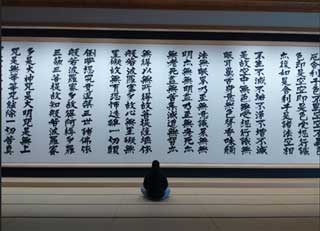 色即是空空即是色受想行識
亦復如是舍利子是諸法空相
不生不滅不垢不淨不增不減
是故空中無色無受想行識無
眼耳鼻舌身意無色聲香味觸
法無眼界乃至無意識界無無
明亦無無明盡乃至無老死亦
無老死盡無苦集滅道無智亦
無得以無所得故菩提薩埵依
般若波羅蜜多故心無罣礙無
罣礙故無有恐怖遠離一切顛
倒夢想究竟涅槃三世諸佛依
般若波羅蜜多故得阿耨多羅
三藐三菩提故知般若波羅蜜
多是大神咒是大明咒是無上
咒是無等等咒能除一切苦真